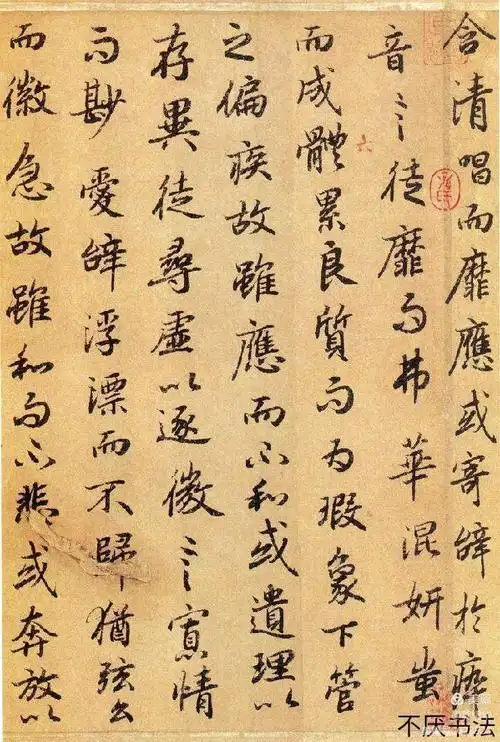 含清唱而靡應或寄辞於瘁
音言徒靡而弗華混妍蚩
而成體累良質而為瑕象下管
之偏疾故雖應而不和或遺理以
存異徒尋虛以逐微言寡情
而尠愛辞浮漂而不歸猶弦幺
而徽急故雖和而不悲或奔放以
六
不厌书法